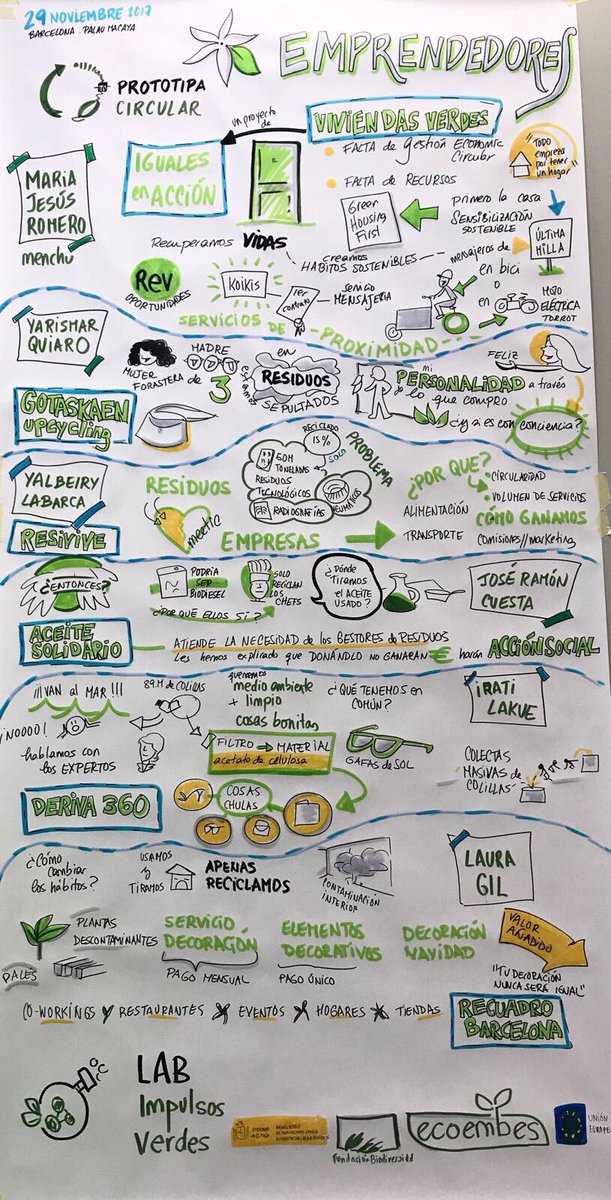 29 NOVIEMBRE 2017
BARCELONA . PALAU MACAYA
EMPRENDEDORES
PROTOTIPA
CIRCULAR
MARIA
JESÚS
ROMERO
menchu
un proyecto
de
IGUALES
en ACCIÓN
VIVIENDAS VERDES
FALTA de gestión ECONOMIC
CIRCULAR
FALTA DE RECURSOS
"TODO
empieza
por tener
un hogar"
Green
Housing
First
primero la casa
SENSIBILIZACIÓN
SOSTENIBLE
ÚLTIMA
MILLA
Recuperamos VIDAS
creamos
HÁBITOS SOSTENIBLES
mensajeros de
en bici
o
en
MOTO
ELÉCTRICA
TORROT
Rev
OPORTUNIDADES
KOIKIS
1er
contrato
servicio
MENSAJERIA
SERVICIOS DE PROXIMIDAD
YARISMAR
QUIARO
GOTASKAEN
upcycling
MUJER
FORASTERA
MADRE
de 3
en
RESIDUOS
SEPULTADOS
mi
PERSONALIDAD a través
de lo que compro
FELIZ
¿y a es con conciencia?
YALBEIRY
LABARCA
RESIVIVE
RESIDUOS
meetic
EMPRESAS
RECICLADO
15%
SOLO
PROBLEMA
50M
TONELADAS
RESIDUOS
TECNOLÓGICOS
RADIOGRAFÍAS
NEUMÁTICOS
¿POR QUE?
CIRCULARIDAD
VOLUMEN DE SERVICIOS
ALIMENTACIÓN
TRANSPORTE
CÓMO GANAMOS
COMISIONES//marketing
¿ENTONCES?
ACEITE
SOLIDARIO
PODRÍA
SER
BIODIESEL
SOLO
RECICLAN
LOS
CHEFS
¿POR QUE ELLOS SI?
¿DÓNDE
TIRAMOS
el ACEITE
USADO?
JOSÉ RAMÓN
CUESTA
ATIENDE LA NECESIDAD de los GESTORES DE RESIDUOS
Les hemos explicado que DONÁNDLO NO GANARAN € harán ACCIÓN SOCIAL
¡¡¡VAN al MAR!!!
¡NOOOO!
hablamos con
los EXPERTOS
DERIVA 360
29.M DE COLILLAS
queremos
medio ambiente
+ limpio
cosas bonitas
¿QUÉ TENEMOS en
COMÚN?
FILTRO → MATERIAL
acetato de celulosa
GAFAS de SOL
COSAS
CHULAS
IRATI
LAKUE
COLECTAS
MASIVAS de
COLILLAS
¿Cómo
cambiar
los hábitos?
USAMOS
y
TIRAMOS
APENAS
RECICLAMOS
CONTAMINACIÓN
INTERIOR
LAURA
GIL
PLANTAS
DESCONTAMINANTES
PALÉS
SERVICIO
DECORACIÓN
PAGO MENSUAL
ELEMENTOS
DECORATIVOS
PAGO ÚNICO
DECORACIÓN
NAVIDAD
VALOR
AÑADIDO
"TU DECORACIÓN
NUNCA SERÁ IGUAL"
CO-WORKINGS RESTAURANTES EVENTOS HOGARES TIENDAS
RECUADRO
BARCELONA
LAB
Impulsos
Verdes
Fundación Biodiversidad
ecoembes
UNIÓN
EUROPE